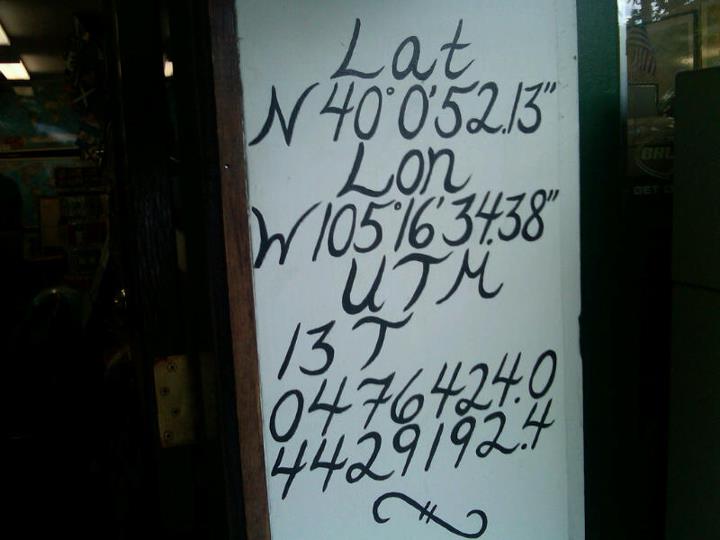 Lat
N 40°0'52.13"
Lon
W 105°16'34.38"
UTM
13 T
0476424.0
4429192.4